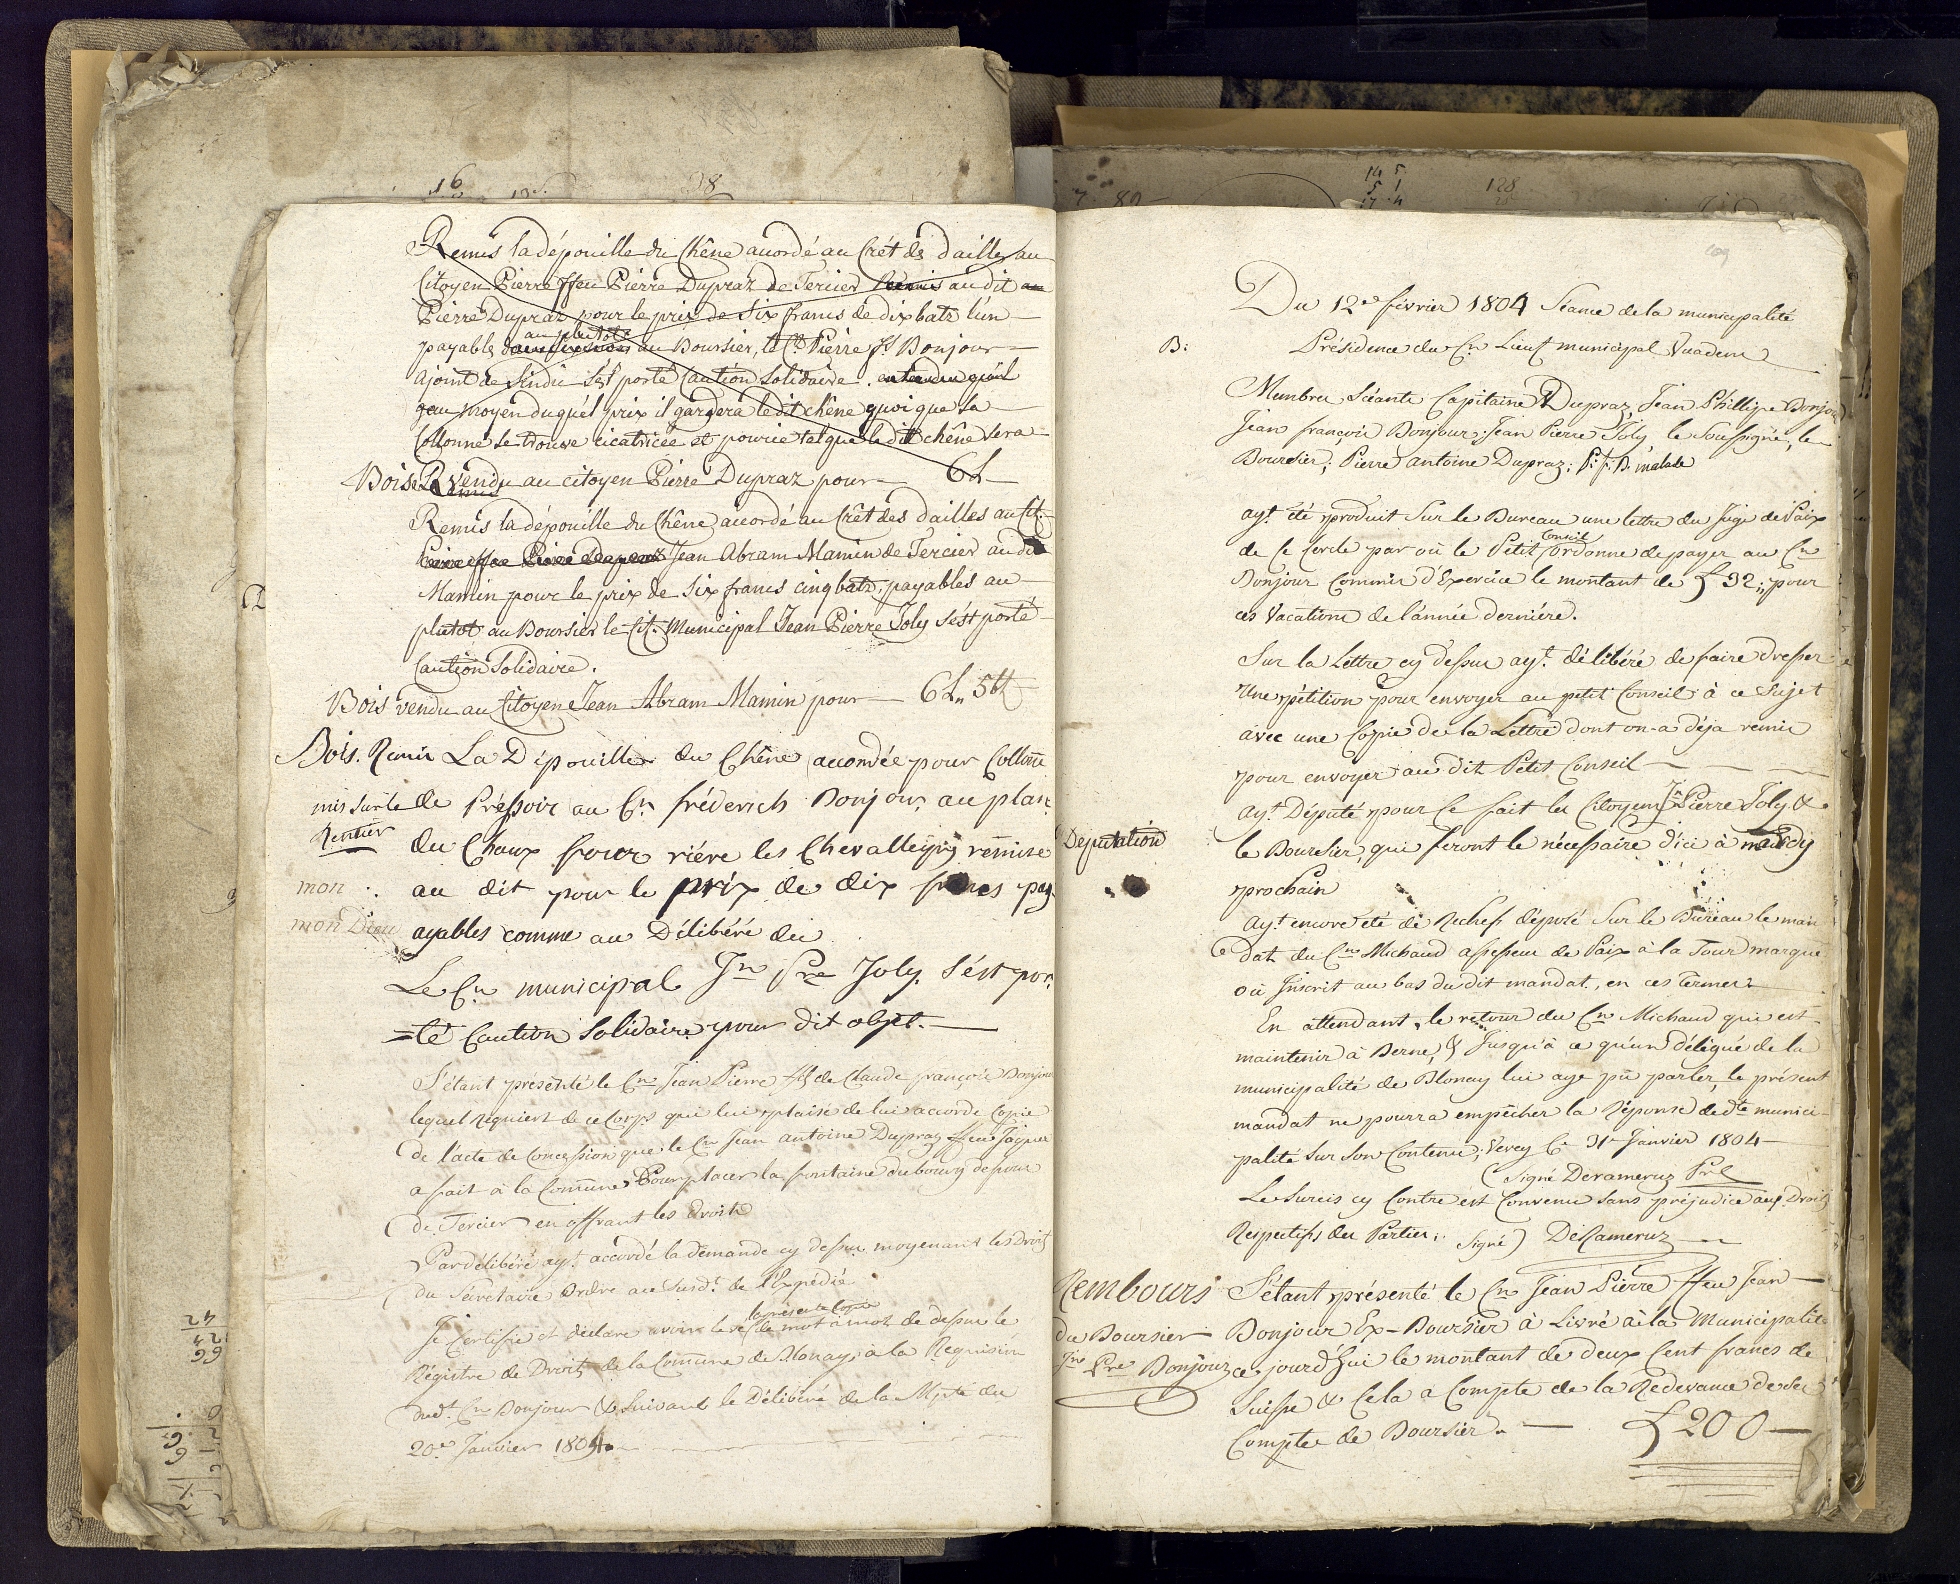 Remis la dépouille du Chêne accordé au Crét des dailles au
Citoyen Pierre ffeu Pierre Dupraz de Tercier Remis au dit au
Pierre Dupraz pour le prix de Six francs de dix batz l'un
au plutôt
payables au Boursier, le Cn Pierre fs Bonjour
ajoint de Sindic s'est porté Caution Solidaire. entendu qu'il
moyen duquél prix il gardera le dit chêne quoique la
Collonne se trouve cicatricée et pourie tel que le dit chêne sera
Bois Remis vendu au citoyen Pierre Dupraz pour 6 L
Remis la dépouille du Chêne accordé au Crêt des dailles au Cit.
Pierre ffeu Pierre Dupraz Jean Abram Mamin de Tercier au dit
Mamin pour le prix de Six francs cinq batz, payables au
plutot au Boursier le Cit. Municipal Jean Pierre Joly s'est porté
Caution Solidaire.
Bois vendu au Citoyen Jean Abram Mamin pour 6 L,, 5 bz
Bois. Remis La Dépouille du Chêne accordée pour Collonne
mis sur le
Rentier
de Préssoir au Cn fréderich Bonjour, au plan
du Chaux four riére les Chevalleyres remise
mon
au dit pour le prix de dix francs pay
mon Dieu
ayables comme au Délibéré du
Le Cn municipal Jn Pre Joly. S'ést por
=té Caution Solidaire pour dit objet.
S'étant présenté le Cn Jean Pierre ffs de Claude françois Bonjour
lequel Requiert de ce Corps qui lui plaise de lui accordé Copie
de l'acte de Concession que le Cn Jean antoine Dupraz ffeu Jaques
a fait à la Commune Pour placer la fontaine du bourg dessous
de Tercier en offrant les droits
Par délibéré ayt. accordé la demande cy dessus moyenant les Droits
du Sécretaire Ordre au Susdt. de l'Expédié
la présente Copie
Je Certifie et déclare avoir levé de mot à mot de dessus le
Régistre de Droits de la Commune de Blonay, à la Requisition
dudt. Cn Bonjour & Suivant le Délibéré de la Mpté du
20e Janvier 1804.
Du 12e février 1804 Séance de la municipalité
B:
Présidence du Cn Lieut municipal Vuadens
Membres Séants Capitaine Dupraz, Jean Phillipe Bonjour
Jean françois Bonjour, Jean Pierre Joly, le Soussigné, le
Boursier, Pierre antoine Dupraz; P. f. B. malade
ayt. été produit Sur le Bureau une lettre du Juge de Paix
Conseil
de Ce Cercle par où le Petit Ordonne de payer au Cn
Bonjour Commis d'Exercice le montant de £ 32,, pour
ces Vacations de l'année derniére.
Sur la Lettre cy dessus ayt. délibéré de faire dresser
Une pétition pour envoyer au petit Conseil à ce Sujet
avec une Copie de la Lettre dont on a déja remis
pour envoyer au dit Petit Conseil
Députation
ayt. Député pour Ce fait les Citoyens Jn Pierre Joly &
le Boursier, qui feront le nécessaire d'ici à mardy
prochain
ayt encore été de Rechef déposé Sur le Bureau le man
dat du Cn Michaud assesseur de Paix à la Tour marqué
où Jnscrit au bas du dit mandat, en ces termes
En attendant le retour du Cn Michaud qui est
maintenir à Berne, & Jusqu'à ce qu'un délégué de la
municipalité de Blonay lui aye pû parler, le présent
mandat ne pourra empêcher la Réponse de dte munici-
palité sur son Contenu, Vevey Ce 31e Janvier 1804
Signé Derameruz
Le Surcis cy Contre est Convenu sans préjudice aux Droits
Respectifs des Parties. Signé) DeRameruz
Rembours
du Boursier
Jn Pre Bonjour
S'étant présenté le Cn Jean Pierre ffeu Jean
Bonjour Ex-Boursier à Livré à la Municipalité
ce jourd'hui le montant de deux Cent francs de
Suisse & Cela a Compte de la Redevance de Ses
Comptes de Boursier. £ 200